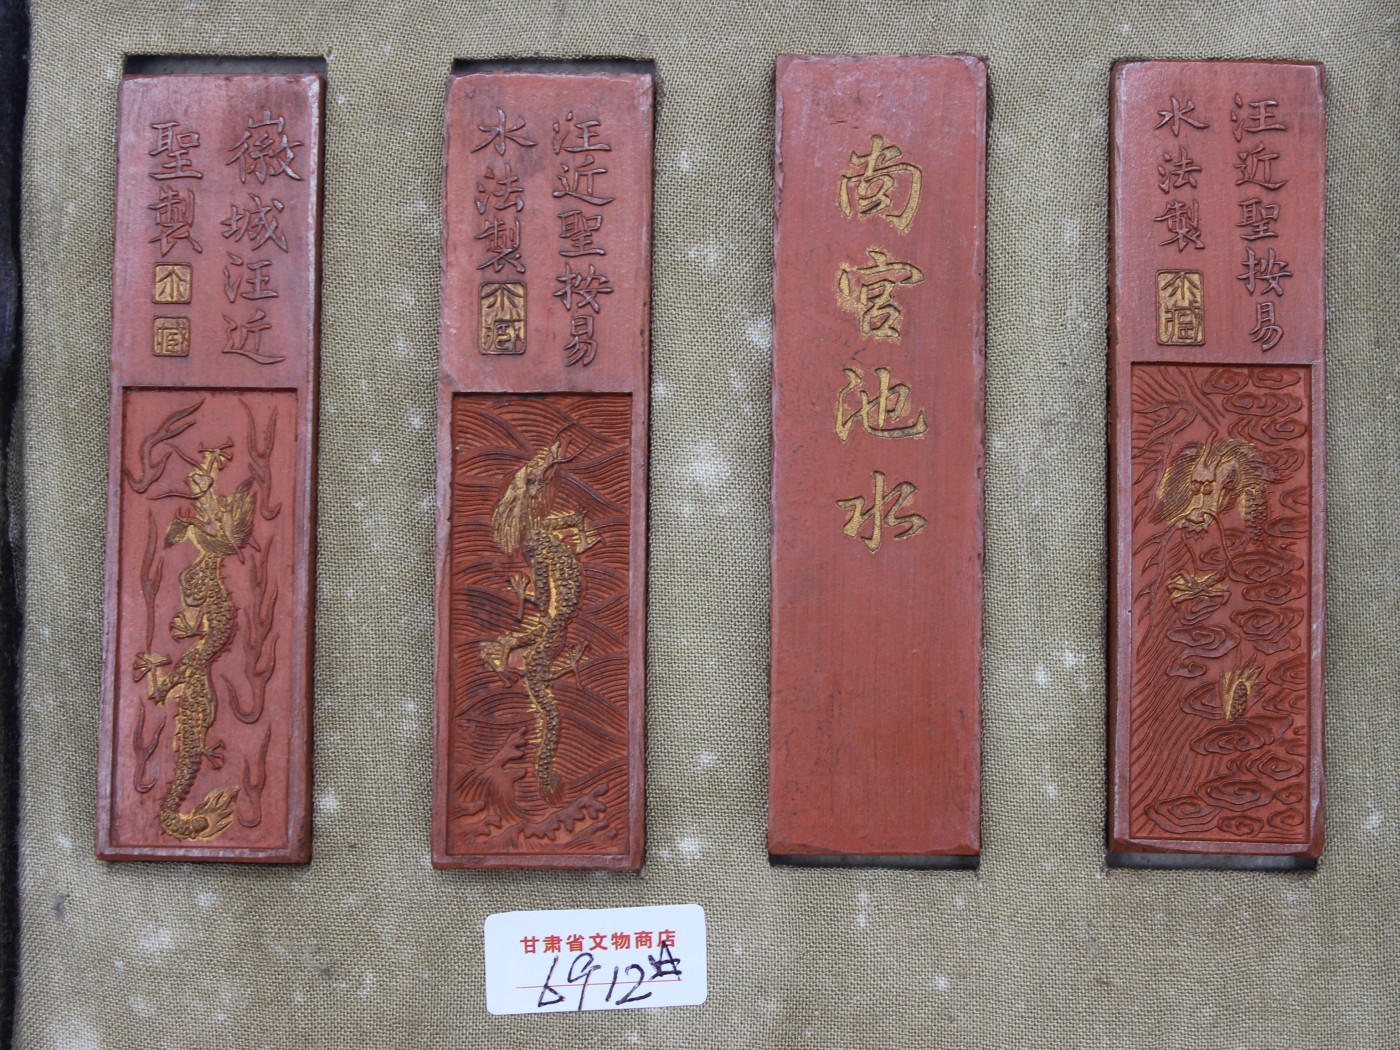 徽城汪近
聖製
汪近聖按易
水法製
尚宮池水
汪近聖按易
水法製
甘肃省文物商店
6912